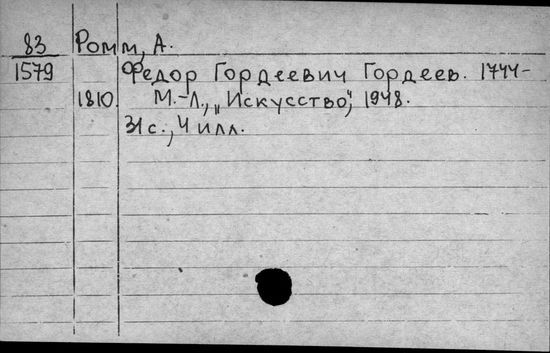 83 Ромм, А.
1579 Федор Гордеевич Гордеев. 1744-
1810. М.-Л., „Искусство", 1948.
31 с., 4 илл.